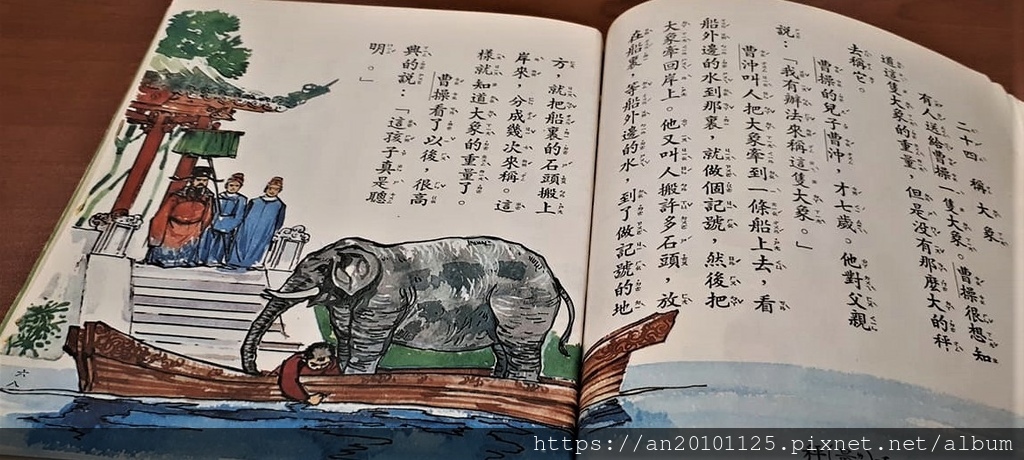 二十四　稱大象
有人送給曹操一隻大象。曹操很想知
道這隻大象的重量，但是沒有那麼大的秤
去稱它。
曹操的兒子曹沖，才七歲。他對父親
說：「我有辦法來稱這隻大象。」
曹沖叫人把大象牽到一條船上去，看
船外邊的水到那裏，就做個記號，然後把
大象牽回岸上。他又叫人搬許多石頭，放
在船裏，等船外邊的水，到了做記號的地
方，就把船裏的石頭搬上
岸來，分成幾次來稱。這
樣就知道大象的重量了。
曹操看了以後，很高
興的說：「這孩子真是聰
明。」
六八
https://an20101125.pixnet.net/album